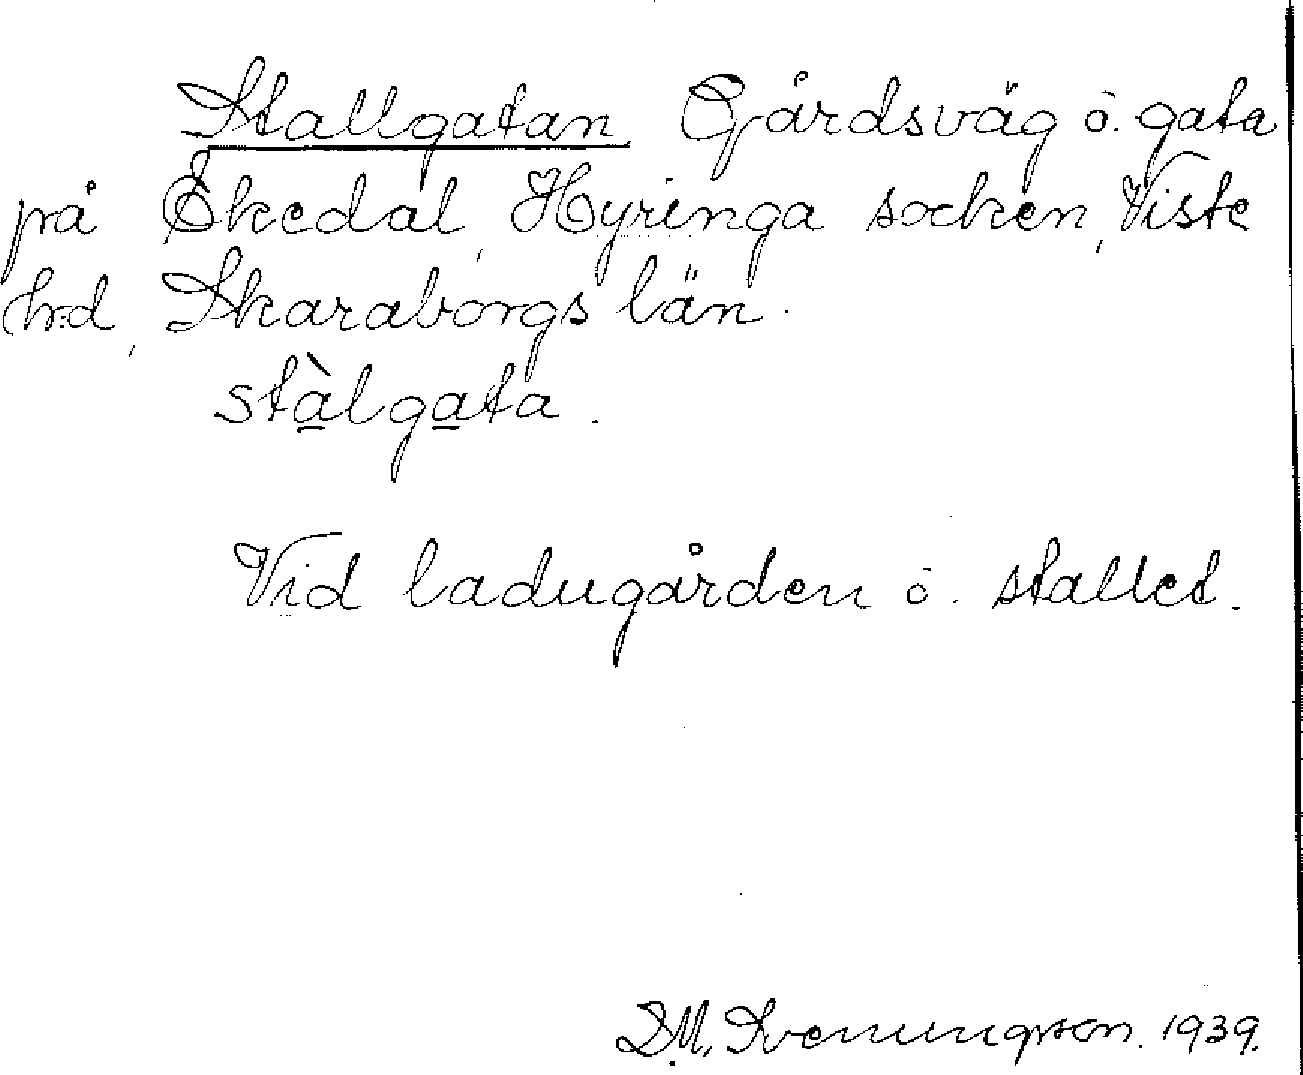 Stallgatan Gårdsväg o. gata
på Ekedal, Hyringa socken, Viste
hrd, Skaraborgs län.
stàlgata.
Vid ladugården o. stallet.
D.M. Svenungsson. 1939.